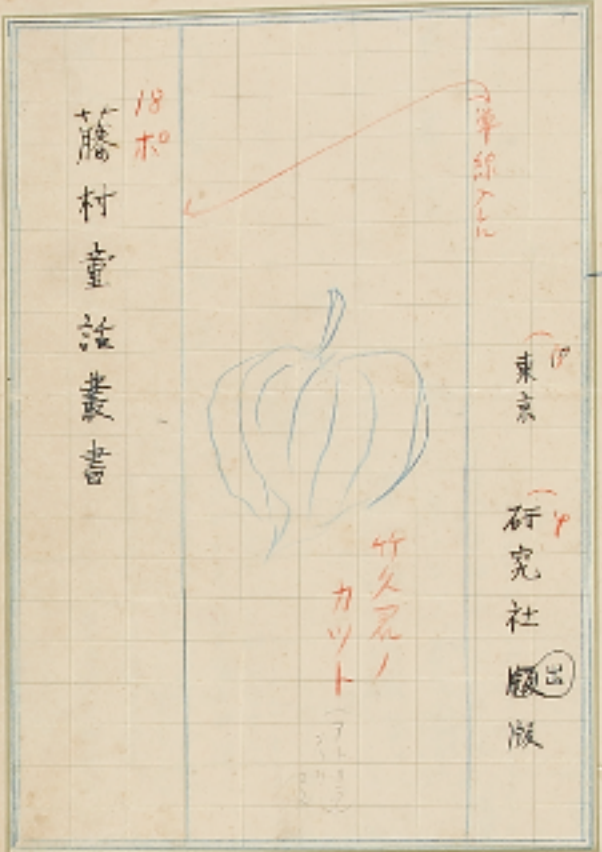 単線入レル
東京
研究社
出版
竹久君ノ
カット
18
ポ
藤村童話叢書